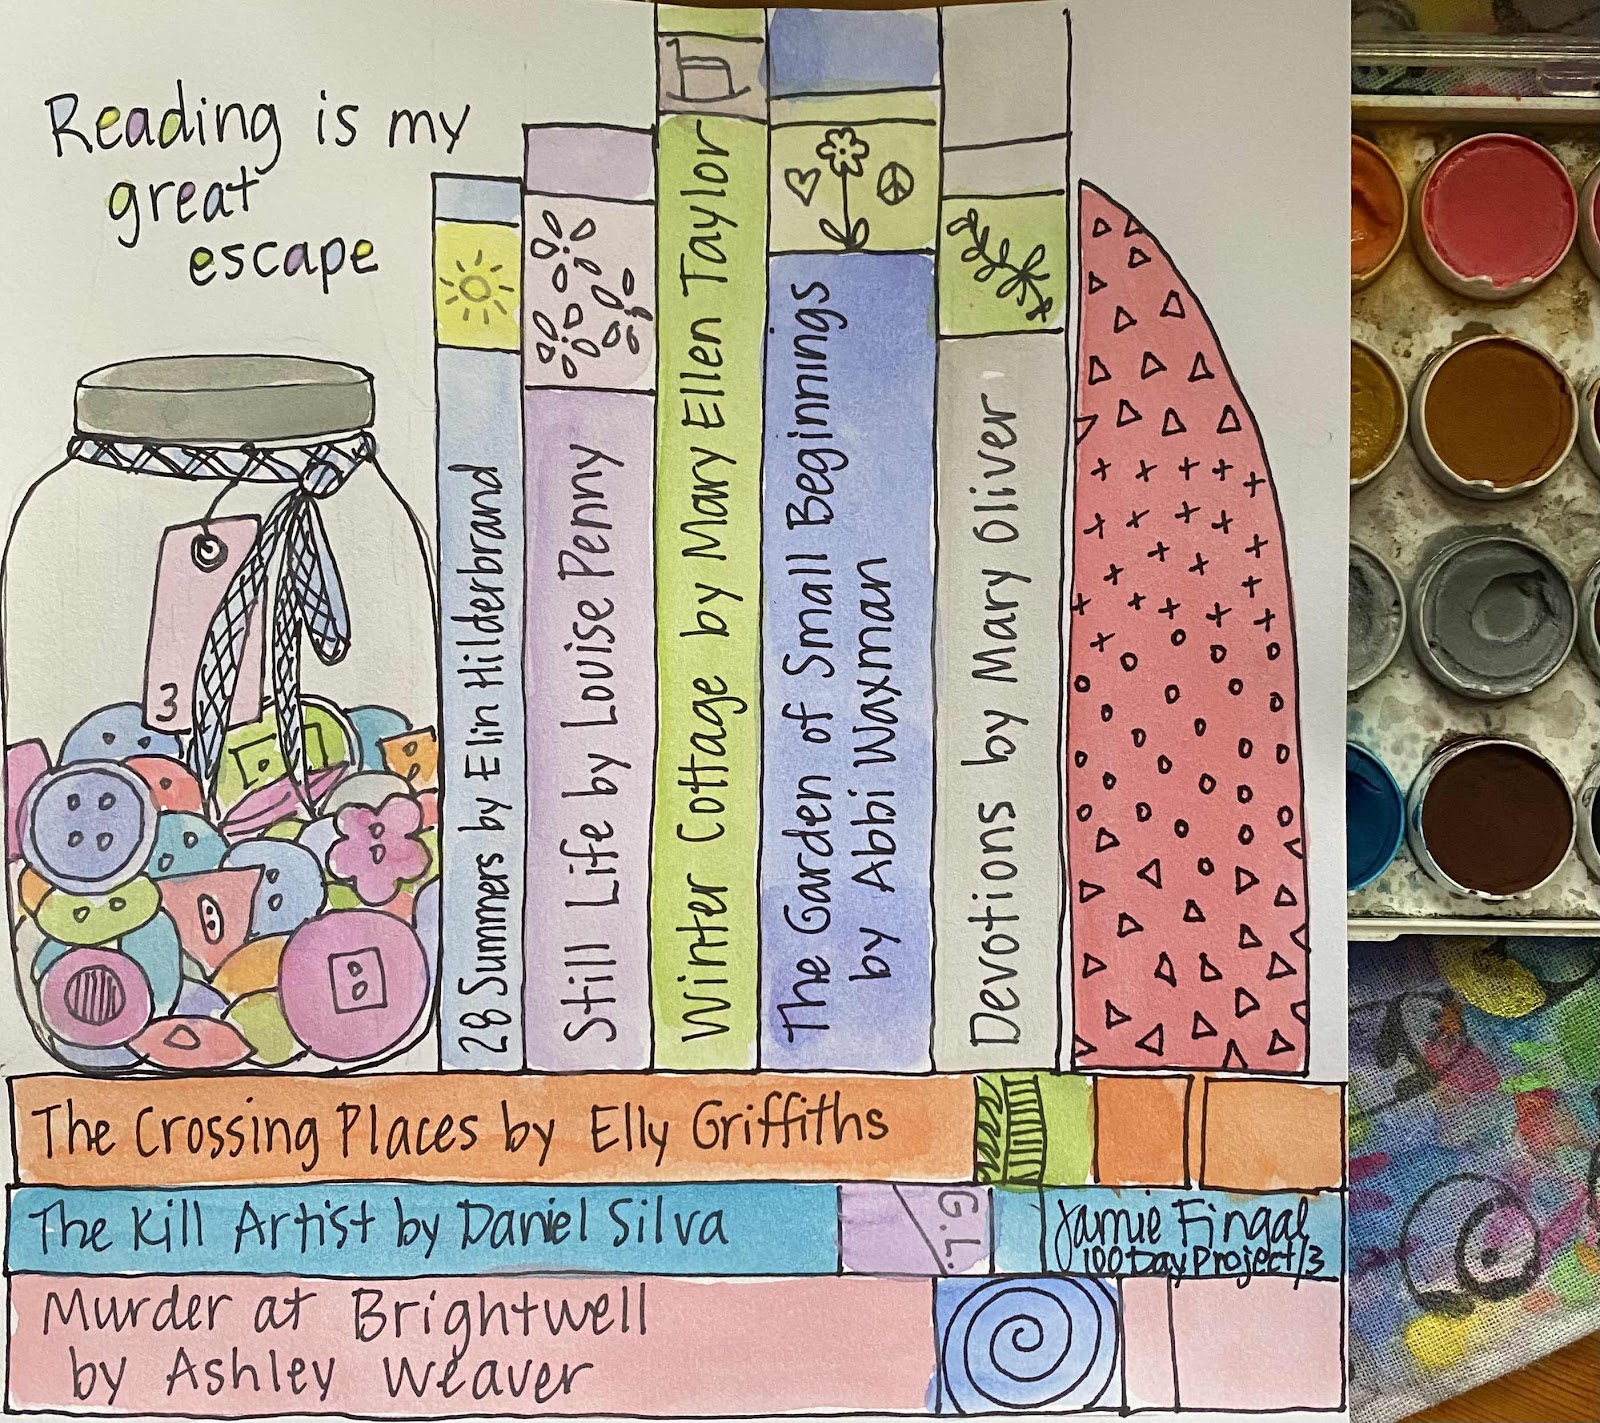 Reading is my
great
escape
3
28 Summers by Elin Hilderbrand
Still Life by Louise Penny
Winter Cottage by Mary Ellen Taylor
The Garden of Small Beginnings
by Abbi Waxman
Devotions by Mary Oliver
The Crossing Places by Elly Griffiths
The Kill Artist by Daniel Silva
G.L.
Jamie Fingal
100 Day Project/3
Murder at Brightwell
by Ashley Weaver